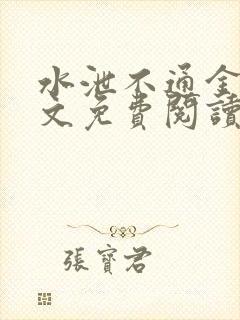 水泄不通全
文免費閱讀
張寶君